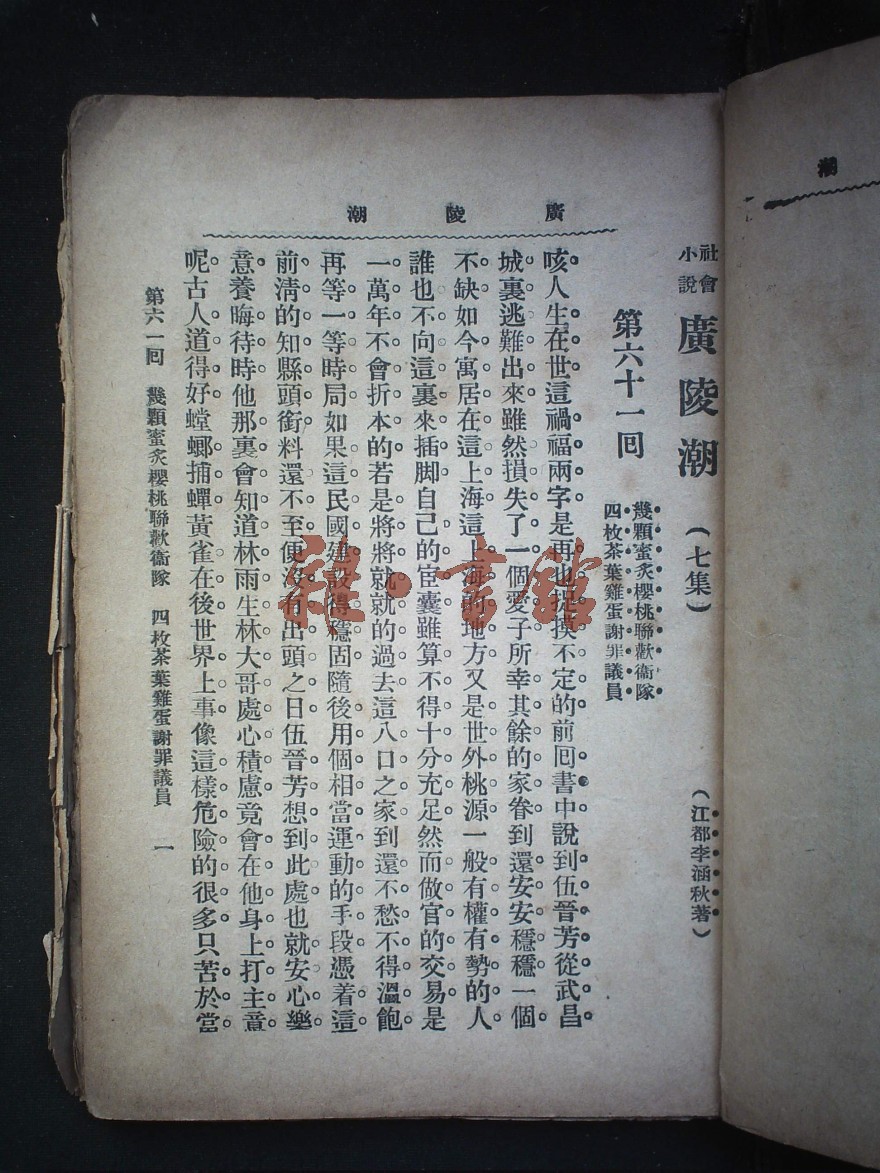 廣陵潮
社會小說 廣陵潮 （七集） （江都李涵秋著）
第六十一回
幾顆蜜炙櫻桃聯歡衞隊
四枚茶葉雞蛋謝罪議員
咳人生在世這禍福兩字是再也捉摸不定的前回書中說到伍晉芳從武昌
城裏逃難出來雖然損失了一個愛子所幸其餘的家眷到還安安穩穩一個
不缺如今寓居在這上海這上海的地方又是世外桃源一般有權有勢的人
誰也不向這裏來插脚自己的宦囊雖算不得十分充足然而做官的交易是
一萬年不會折本的若是將將就就的過去這八口之家到還不愁不得溫飽
再等一等時局如果這民國建設得穩固隨後用個相當運動的手段憑着這
前淸的知縣頭銜料還不至便沒有出頭之日伍晉芳想到此處也就安心樂
意養晦待時他那裏會知道林雨生林大哥處心積慮竟會在他身上打主意
呢古人道得好螳螂捕蟬黃雀在後世界上事像這樣危險的很多只苦於當
第六一回 幾顆蜜炙櫻桃聯歡衞隊 四枚茶葉雞蛋謝罪議員 一
潮
雜·書館